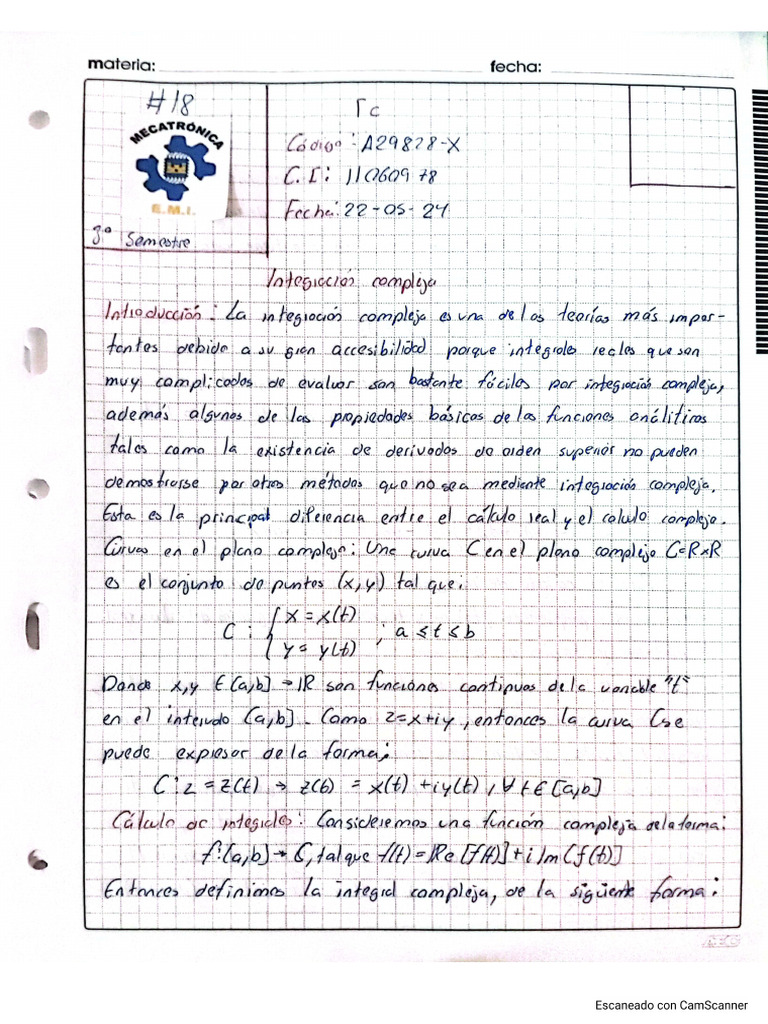 materia:
fecha:
#18
MECATRÓNICA
E.M.I.
3° Semestre
Código: A29828-X
C.I:
Fecha: 22-05-24
Integración compleja
Introducción: La integración compleja es una de las teorías más impor-
tantes debido a su gran accesibilidad porque integrales reales que son
muy complicados de evaluar son bastante fáciles por integración compleja,
además algunos de las propiedades básicos de los funciones análiticos
tales como la existencia de derivados de orden superior no pueden
demostrarse por otros métodos que no sea mediente integración compleja.
Esta es la principal diferencia entre el cálculo real y el calculo complejo.
Curvas en el plano complejo: Una curva C en el plano complejo C=RxR
es el conjunto de puntos (x,y) tal que:
C: { x = x(t)
y = y(t) ; a ≤ t ≤ b
Donde x,y ∈ [a,b] → IR son funciones continuas de la variable "t"
en el intervalo [a,b]. Como z=x+iy, entonces la curva C se
puede expresar de la forma:
C: z = z(t) → z(t) = x(t) + iy(t), ∀ t ∈ [a,b]
Cálculo de integrales: Consideremos una función compleja de la forma:
f: [a,b] → C, tal que f(t) = IRe [f(t)] + i Im [f(t)]
Entonces definimos la integral compleja, de la siguiente forma:
Escaneado con CamScanner